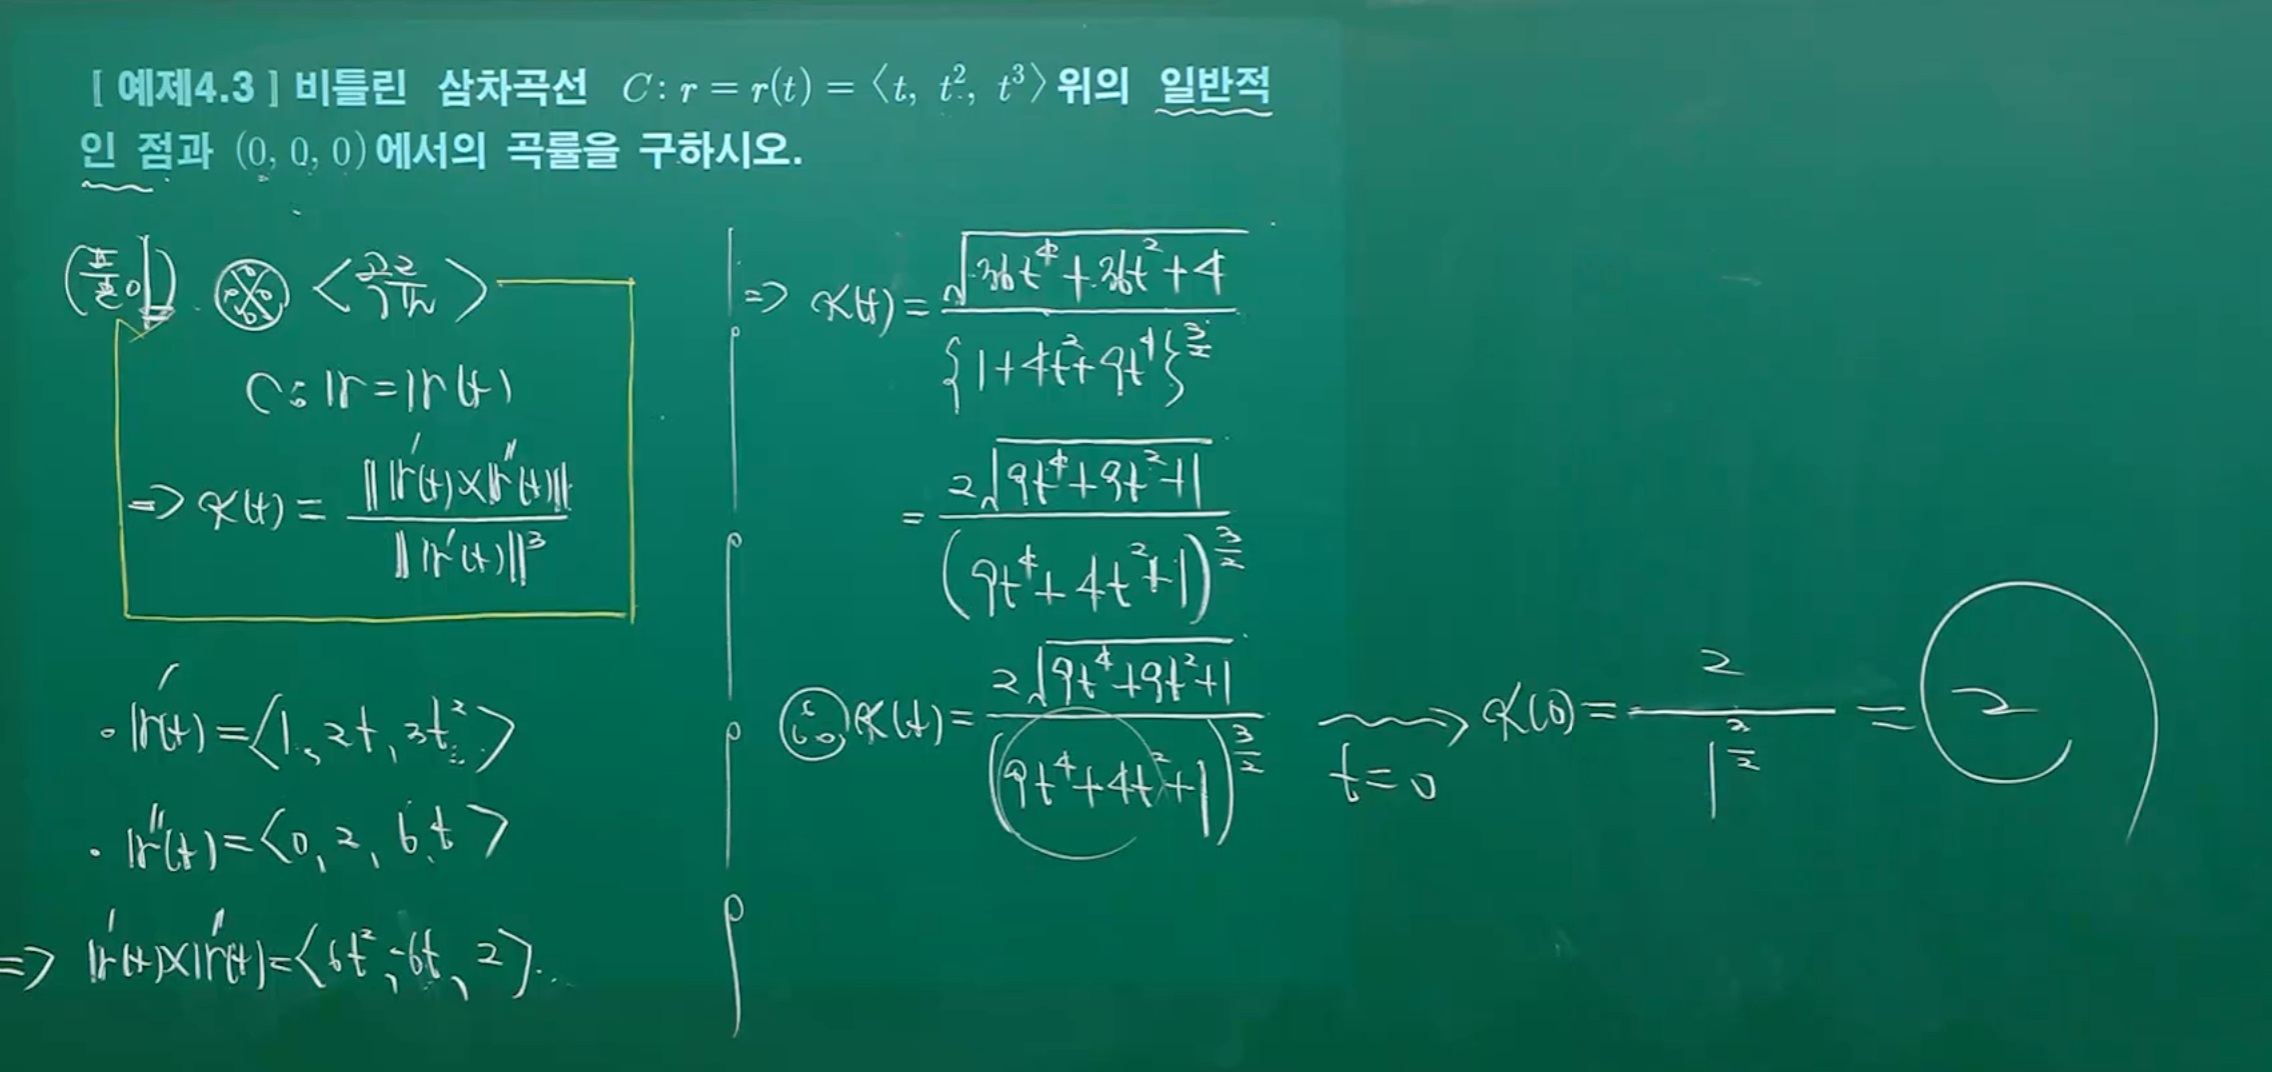 [ 예제4.3 ] 비틀린 삼차곡선 C : r = r(t) = ⟨t, t², t³⟩ 위의 일반적
인 점과 (0, 0, 0)에서의 곡률을 구하시오.
C : r = r(t)
⇒ κ(t) = ‖r′(t)×r″(t)‖ / ‖r′(t)‖³
· r′(t) = ⟨1, 2t, 3t²⟩
· r″(t) = ⟨0, 2, 6t⟩
⇒ r′(t)×r″(t) = ⟨6t², -6t, 2⟩
⇒ κ(t) = √(36t⁴+36t²+4) / {1+4t²+9t⁴}^(3/2)
= 2√(9t⁴+9t²+1) / (9t⁴+4t²+1)^(3/2)
κ(t) = 2√(9t⁴+9t²+1) / (9t⁴+4t²+1)^(3/2)
t=0
κ(0) = 2 / 1^(3/2) = 2